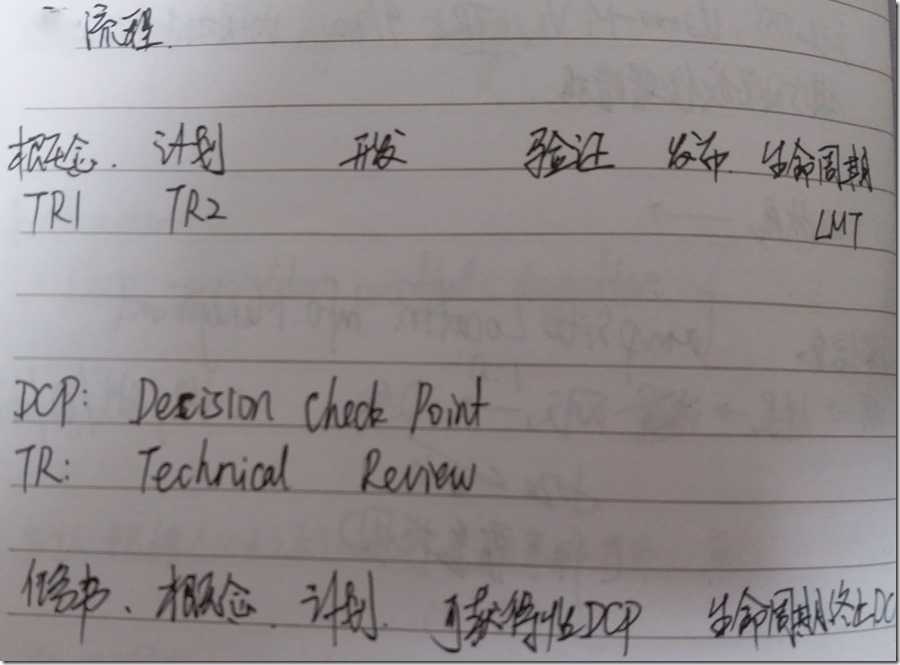 流程.
概念. 计划 开发 验证 发布 生命周期
TR1 TR2 LMT
DCP: Decision Check Point
TR: Technical Review
任务书、概念. 计划. 可获得性DCP 生命周期终止DC